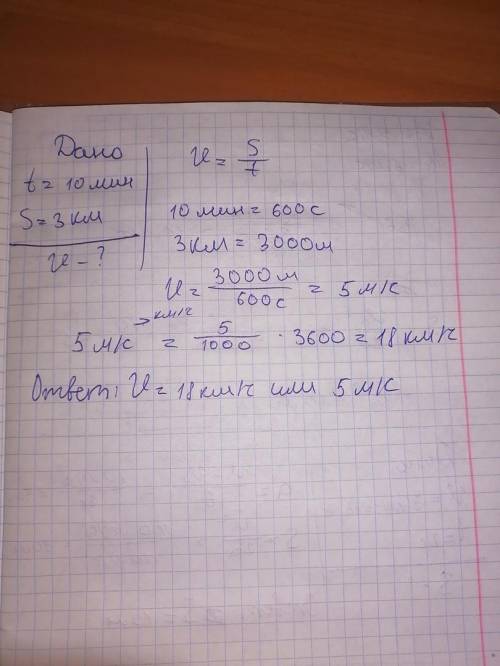 Дано
t = 10 мин
S = 3 км
υ - ?
υ = S/t
10 мин = 600 с
3 км = 3000 м
υ = 3000 м / 600 с = 5 м/с
5 м/с → км/ч = 5/1000 · 3600 = 18 км/ч
Ответ: υ = 18 км/ч или 5 м/с